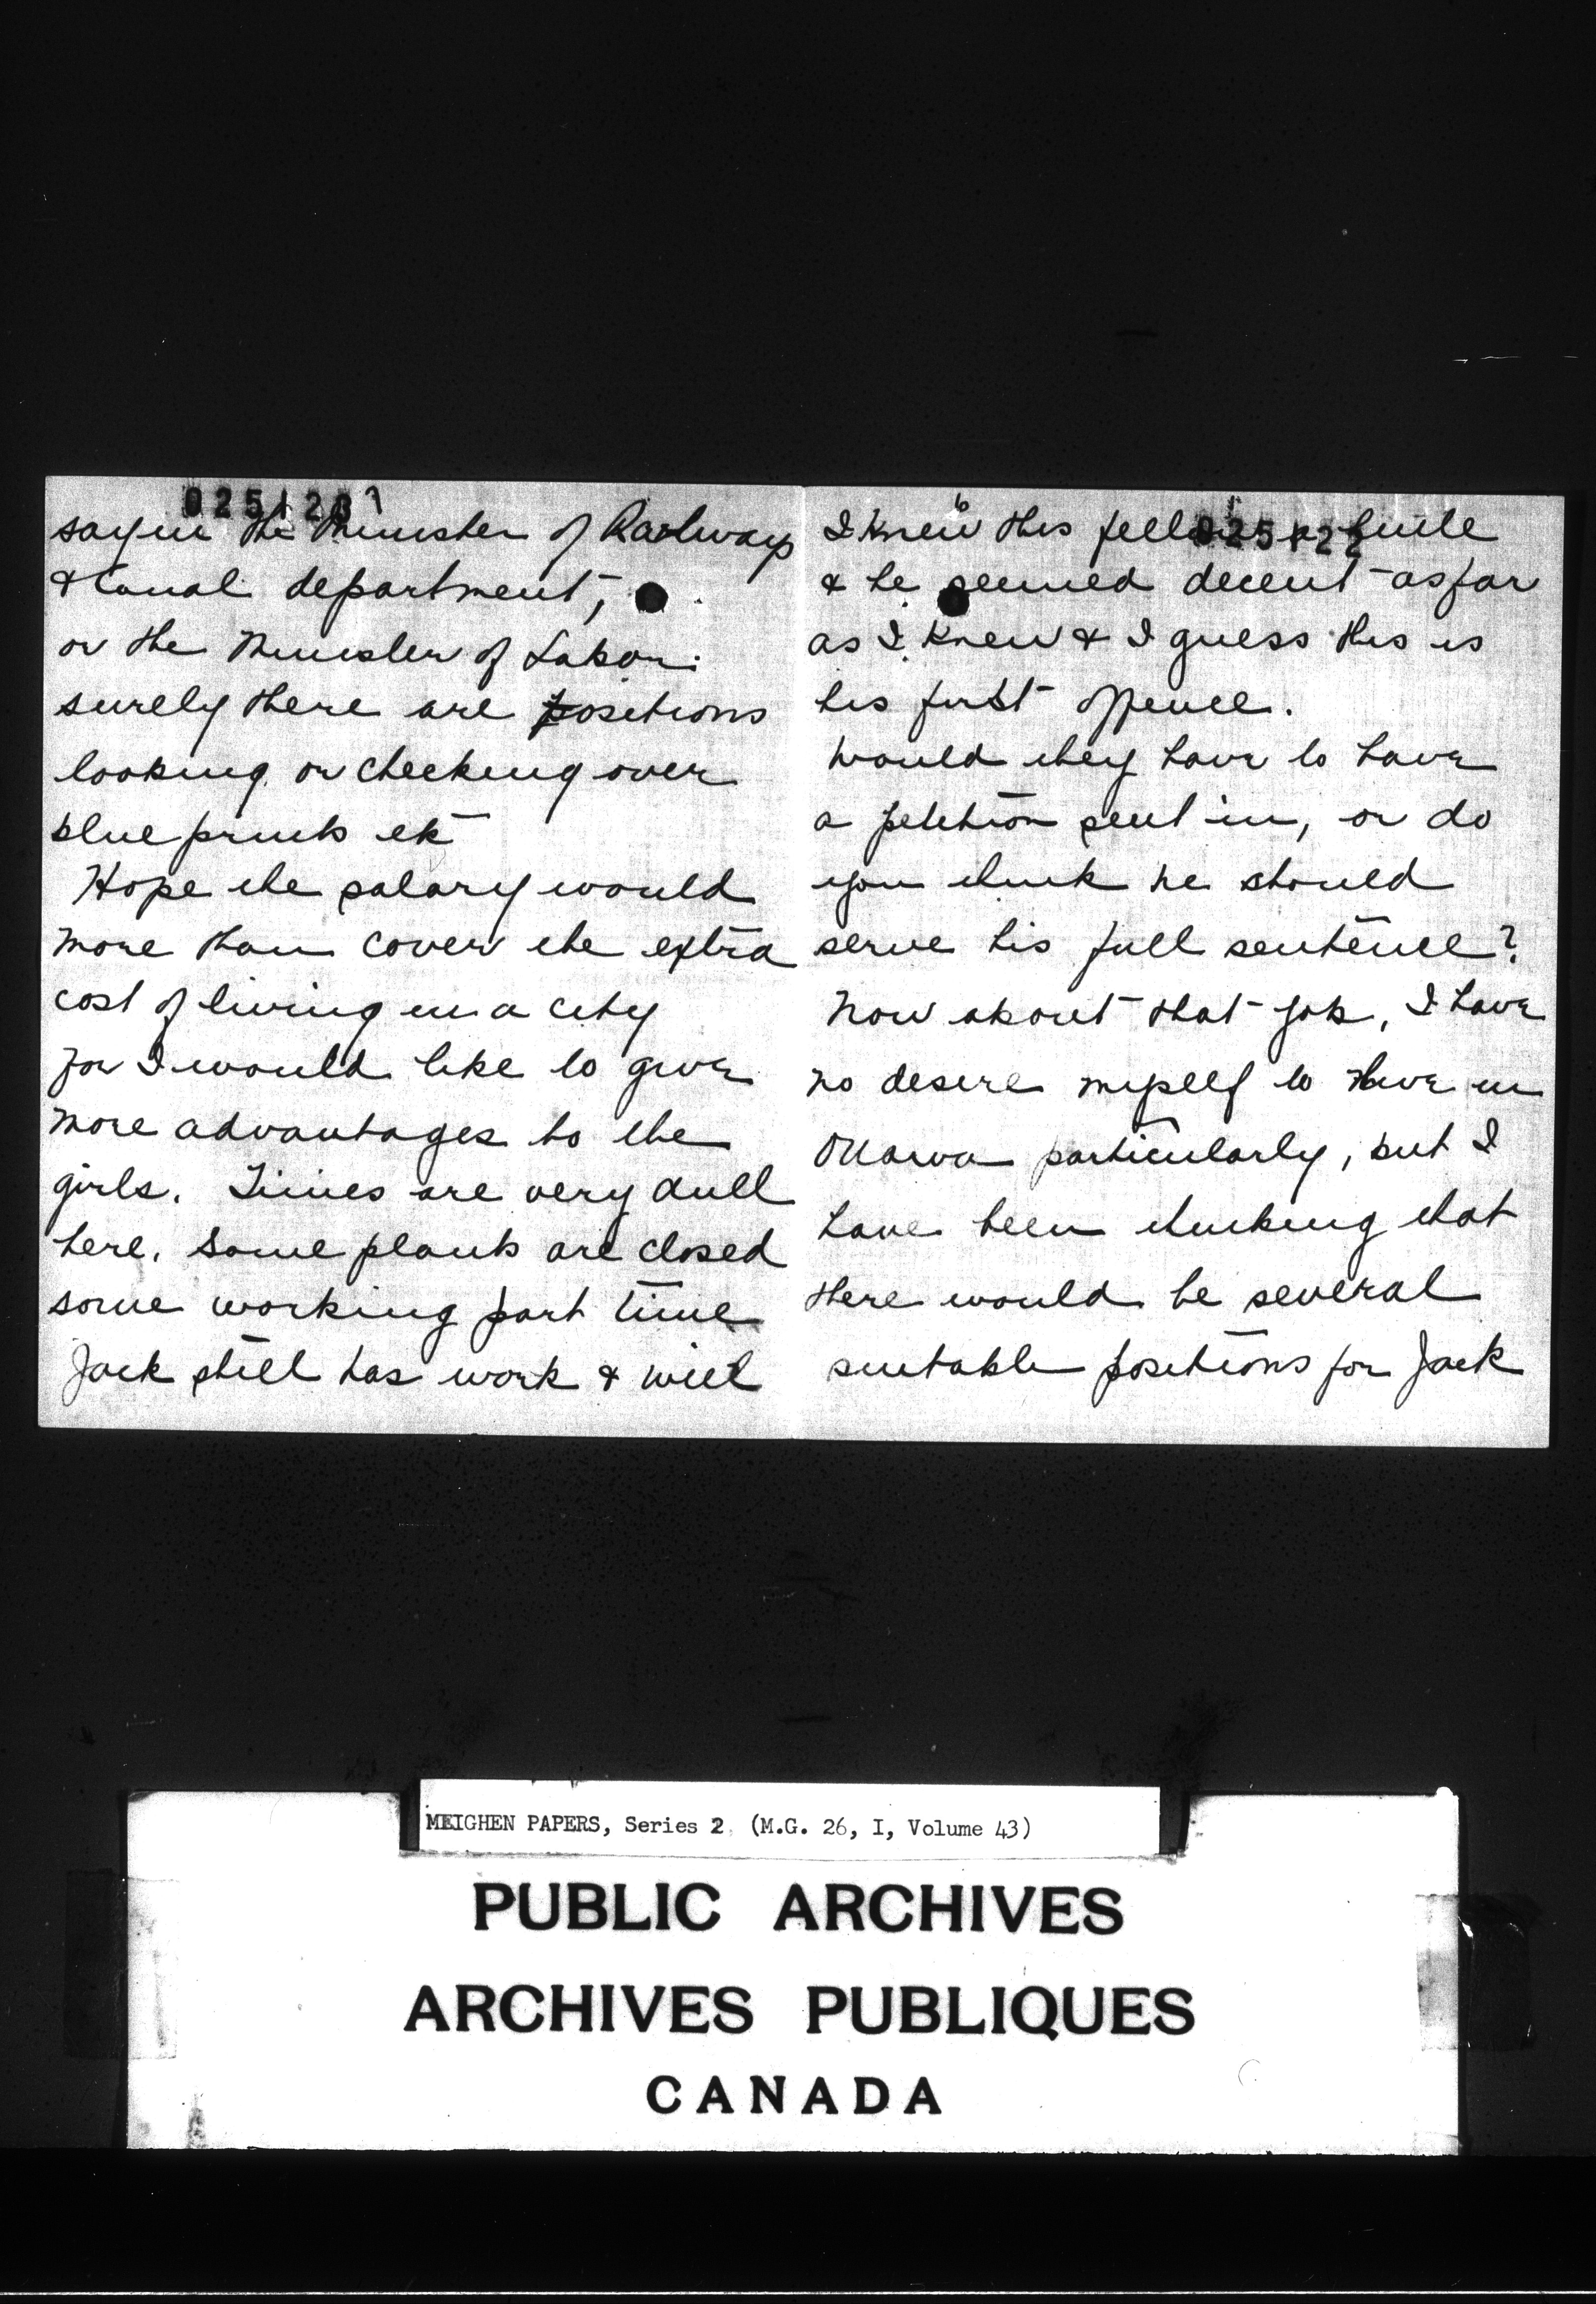 025123
7
say in the Minister of Railways
& Canal department,
or the Minister of Labor.
surely there are positions
looking or checking over
blue prints etc
Hope the salary would
more than cover the extra
cost of living in a city
for I would like to give
more advantages to the
girls. Times are very dull
here. Some plants are closed
some working part time
Jack still has work & will
6
025122
I knew this fellow a little
& he seemed decent as far
as I knew & I guess this is
his first offence.
Would they have to have
a petition sent in, or do
you think he should
serve his full sentence?
Now about that job, I have
no desire myself to live in
Ottawa particularly, but I
have been thinking that
there would be several
suitable positions for Jack
MEIGHEN PAPERS, Series 2 (M.G. 26, I, Volume 43)
PUBLIC ARCHIVES
ARCHIVES PUBLIQUES
CANADA